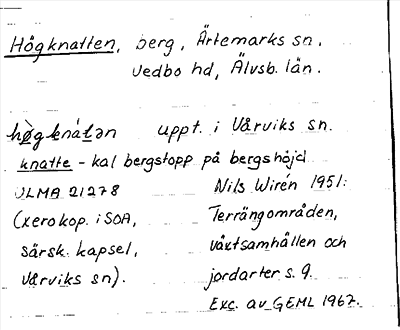 Högknatten, berg, Ärtemarks sn.
Vedbo hd, Älvsb. län.
hög knátən uppt. i Vårviks sn.
knatte - kal bergstopp på bergshöjd
ULMA 21278
(xerokop. i SOA,
särsk. kapsel,
Vårviks sn).
Nils Wirén 1951:
Terrängområden,
växtsamhällen och
jordarter s. 9.
Exc. av GEML 1967.